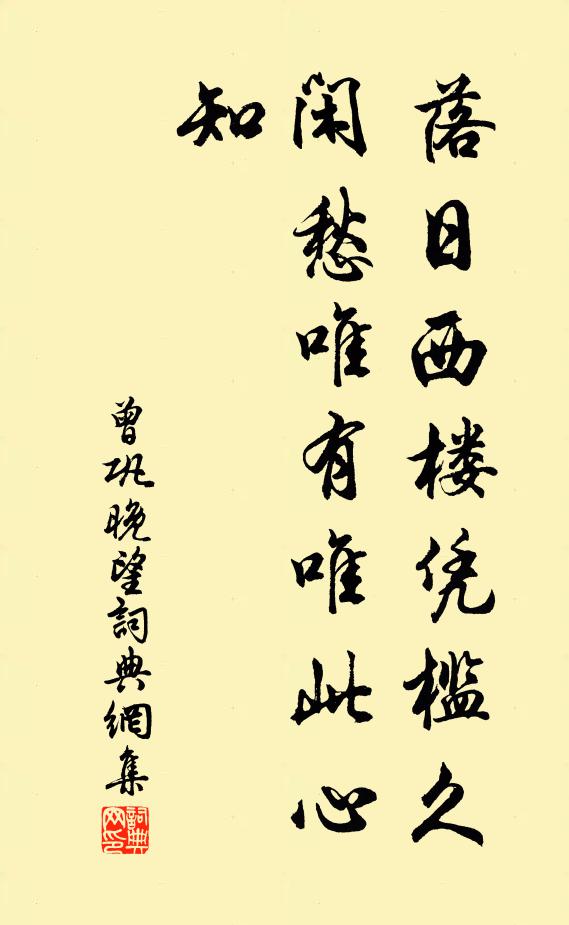 落日西楼凭槛久
闲愁唯有唯此心
知
曾巩晚望詞典網集
詞典网印